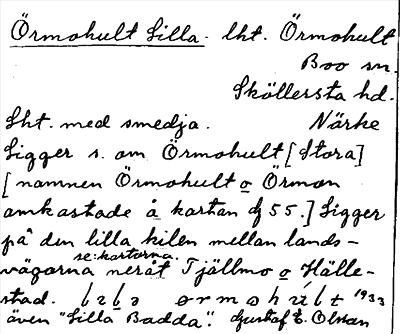 Örmohult Lilla. lht. Örmohult
Boo sn.
Sköllersta hd.
Lht. med smedja. Närke
Ligger s. om Örmohult [Stora]
[namnen Örmohult o Örmon
omkastade å kartan 55.] Ligger
på den lilla kilen mellan lands-
se: kartorna.
vägarna neråt Tjällmo o Hälle-
stad. 1933
även "Lilla Badda". Gustaf E. Olsson